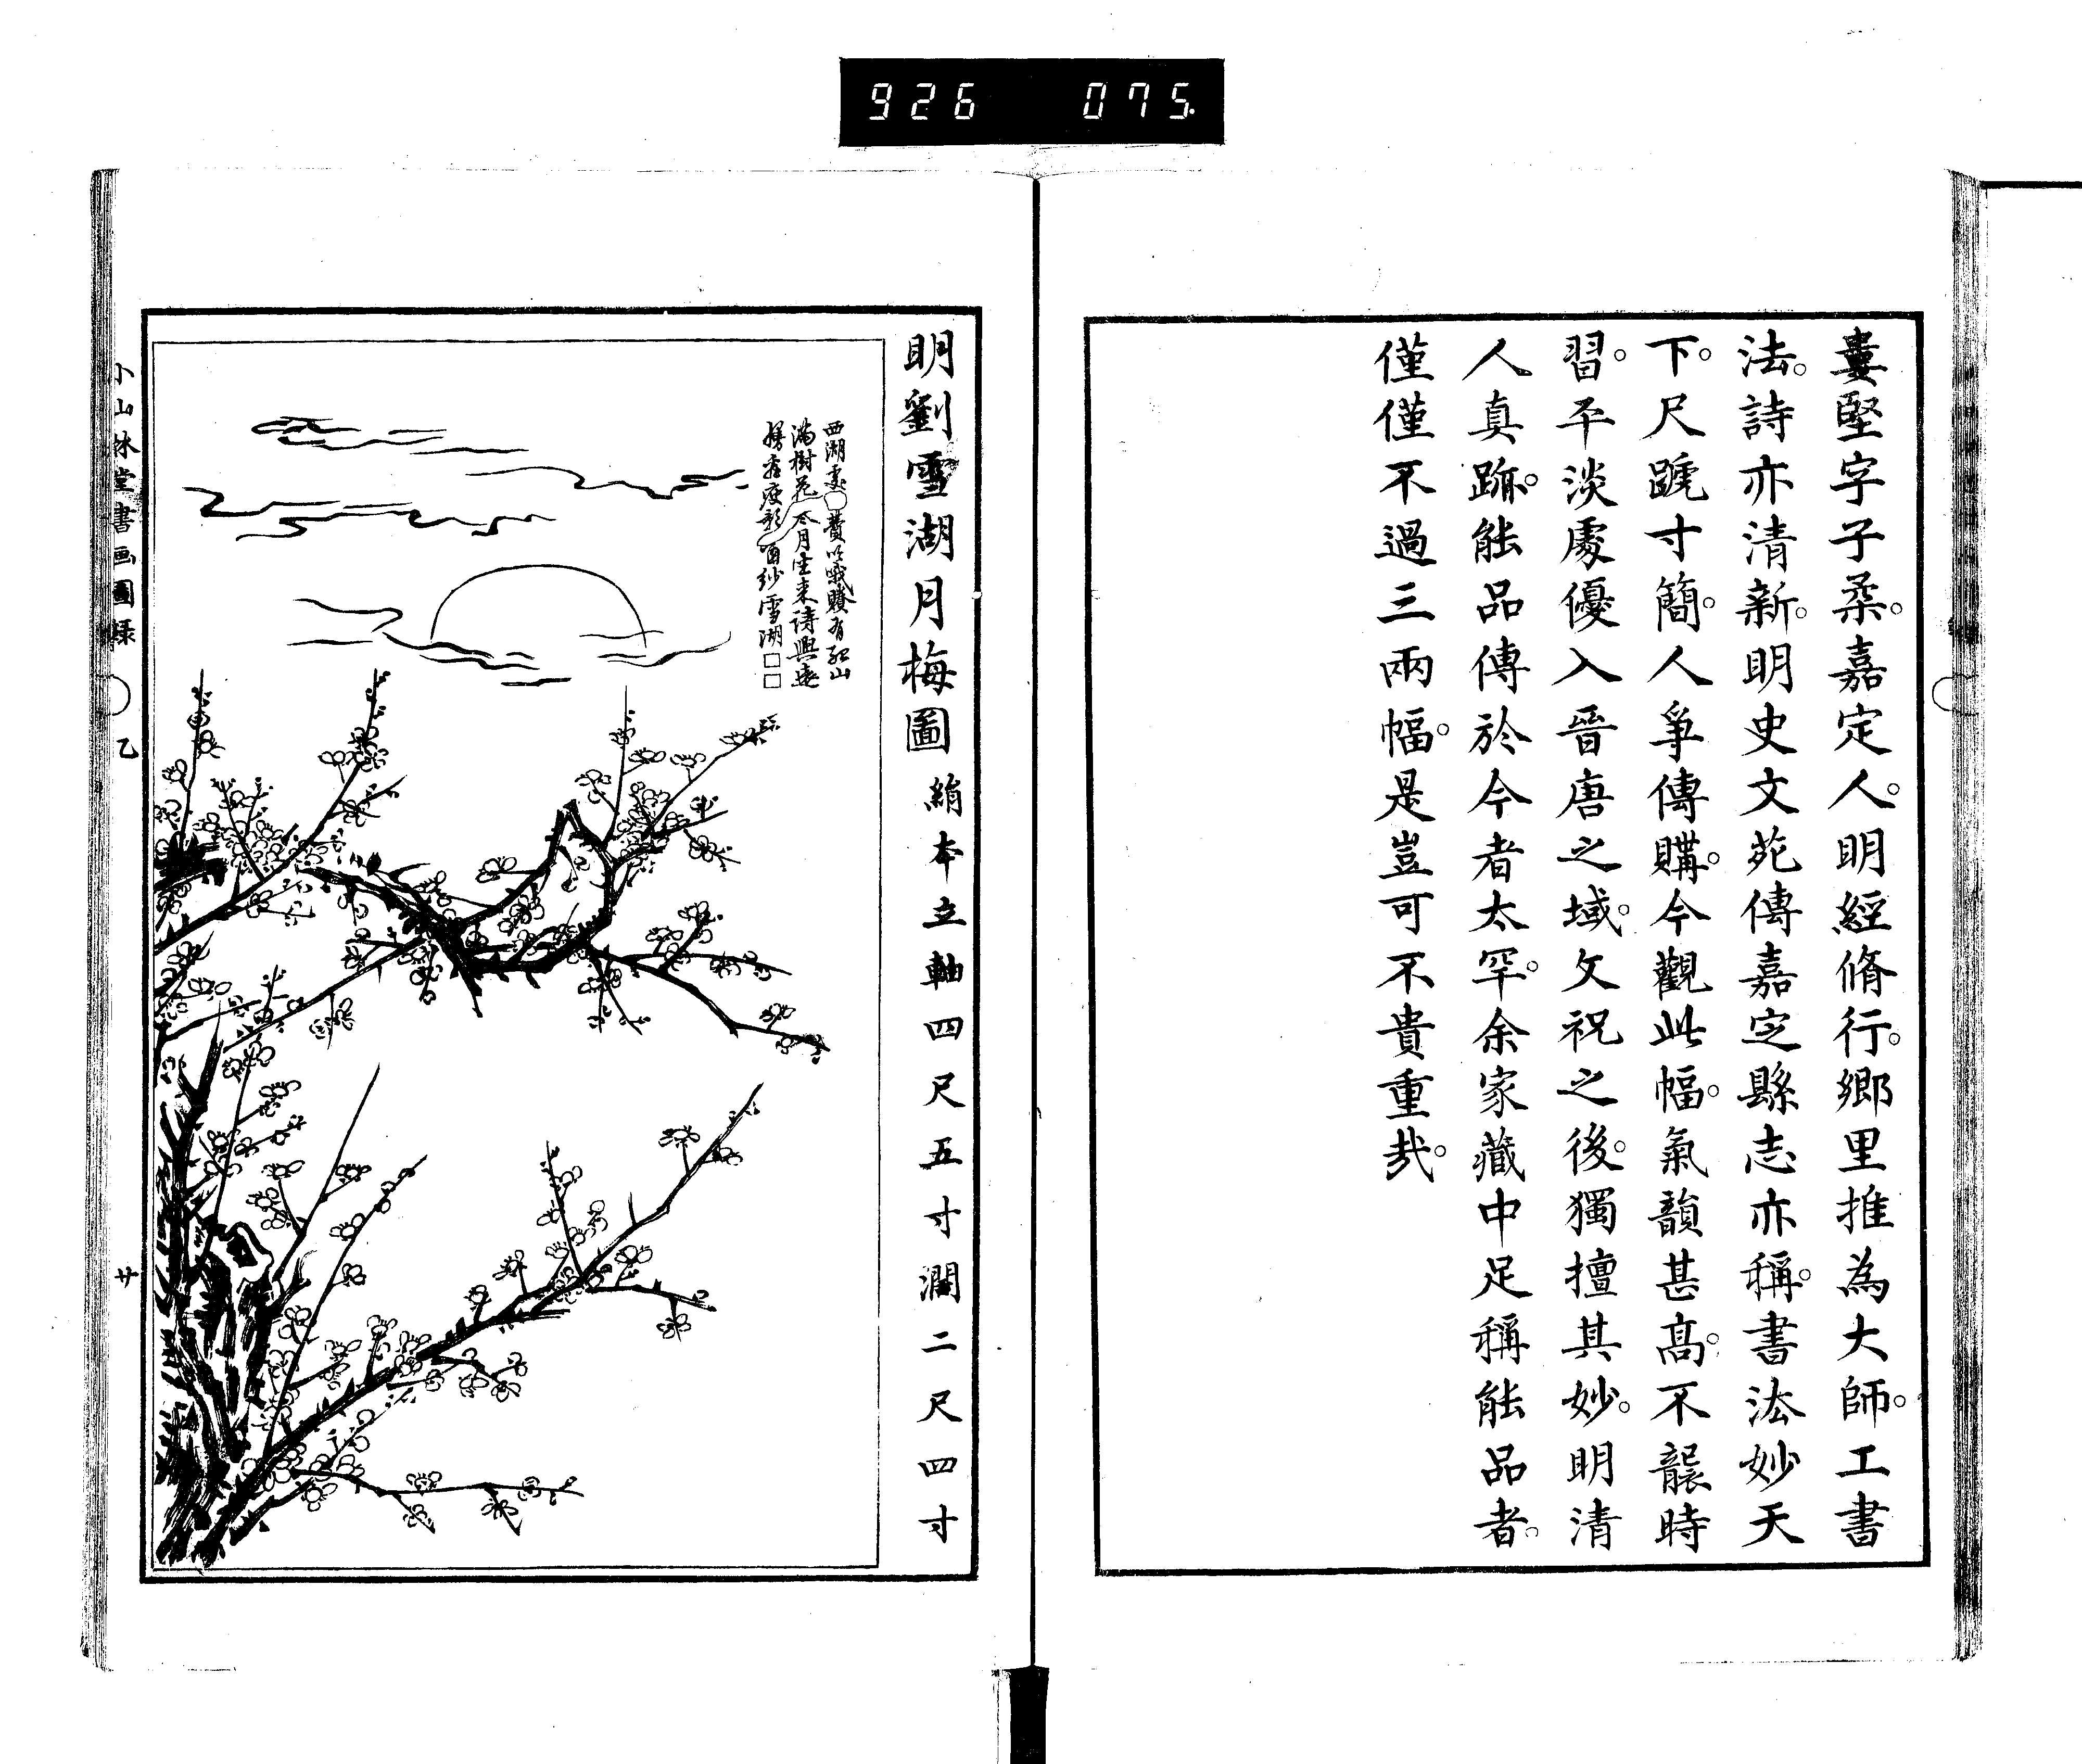 926 075.
婁堅字子柔。嘉定人。明經脩行。鄉里推為大師。工書
法。詩亦清新。明史文苑傳嘉定縣志亦稱。書法妙天
下。尺蹏寸簡。人爭傳購。今觀此幅。氣韻甚高。不襲時
習。平淡處優入晉唐之域。文祝之後。獨擅其妙。明清
人真跡。能品傳於今者太罕。余家藏中足稱能品者。
僅僅不過三兩幅。是豈可不貴重哉。
明劉雪湖月梅圖 絹本立軸四尺五寸濶二尺四寸
西湖處 費吟哦賸有孤山
滿樹花 月生來詩興
影 紗雪湖□□
小山林堂書画圖録 乙 廿